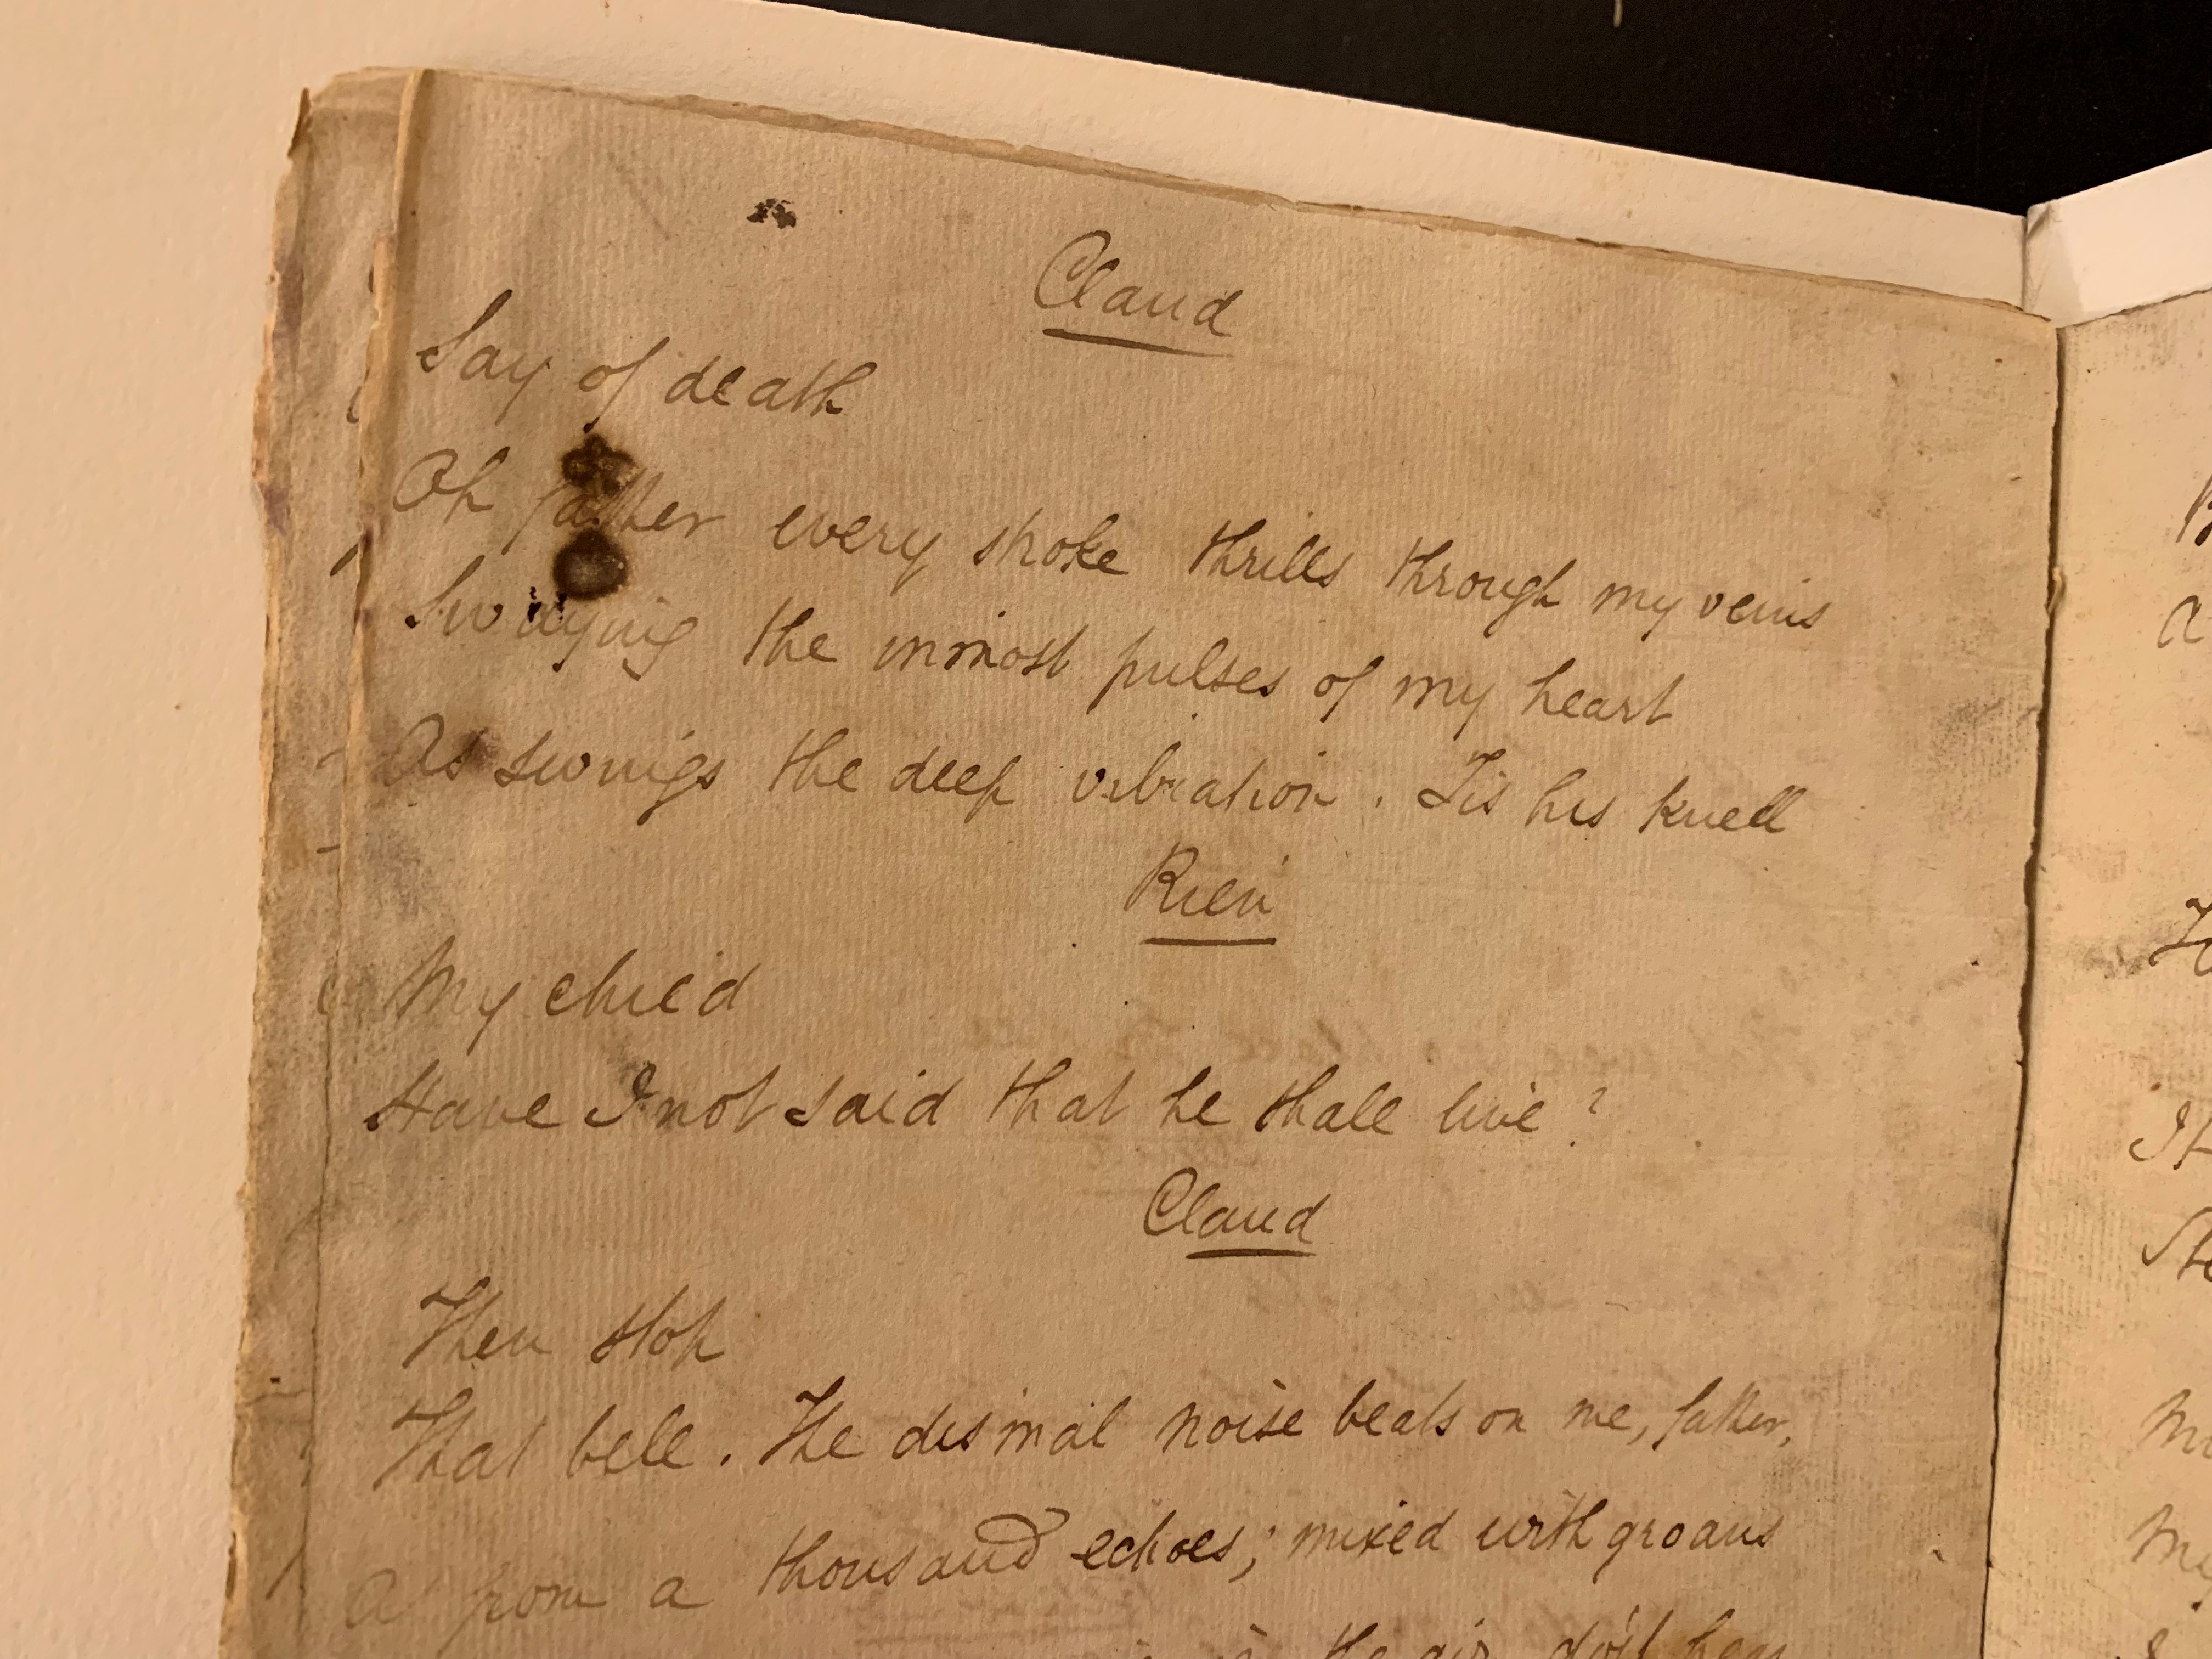 Claud
Say of death
Oh father every stroke thrills through my veins
Swaying the inmost pulses of my heart
As swings the deep vibration. Tis his knell
Rien
My child
Have I not said that he shall live?
Claud
Then stop
That bell. The dismal noise beats on me, father,
from a thousand echoes; mixed with groans
the air dost hear